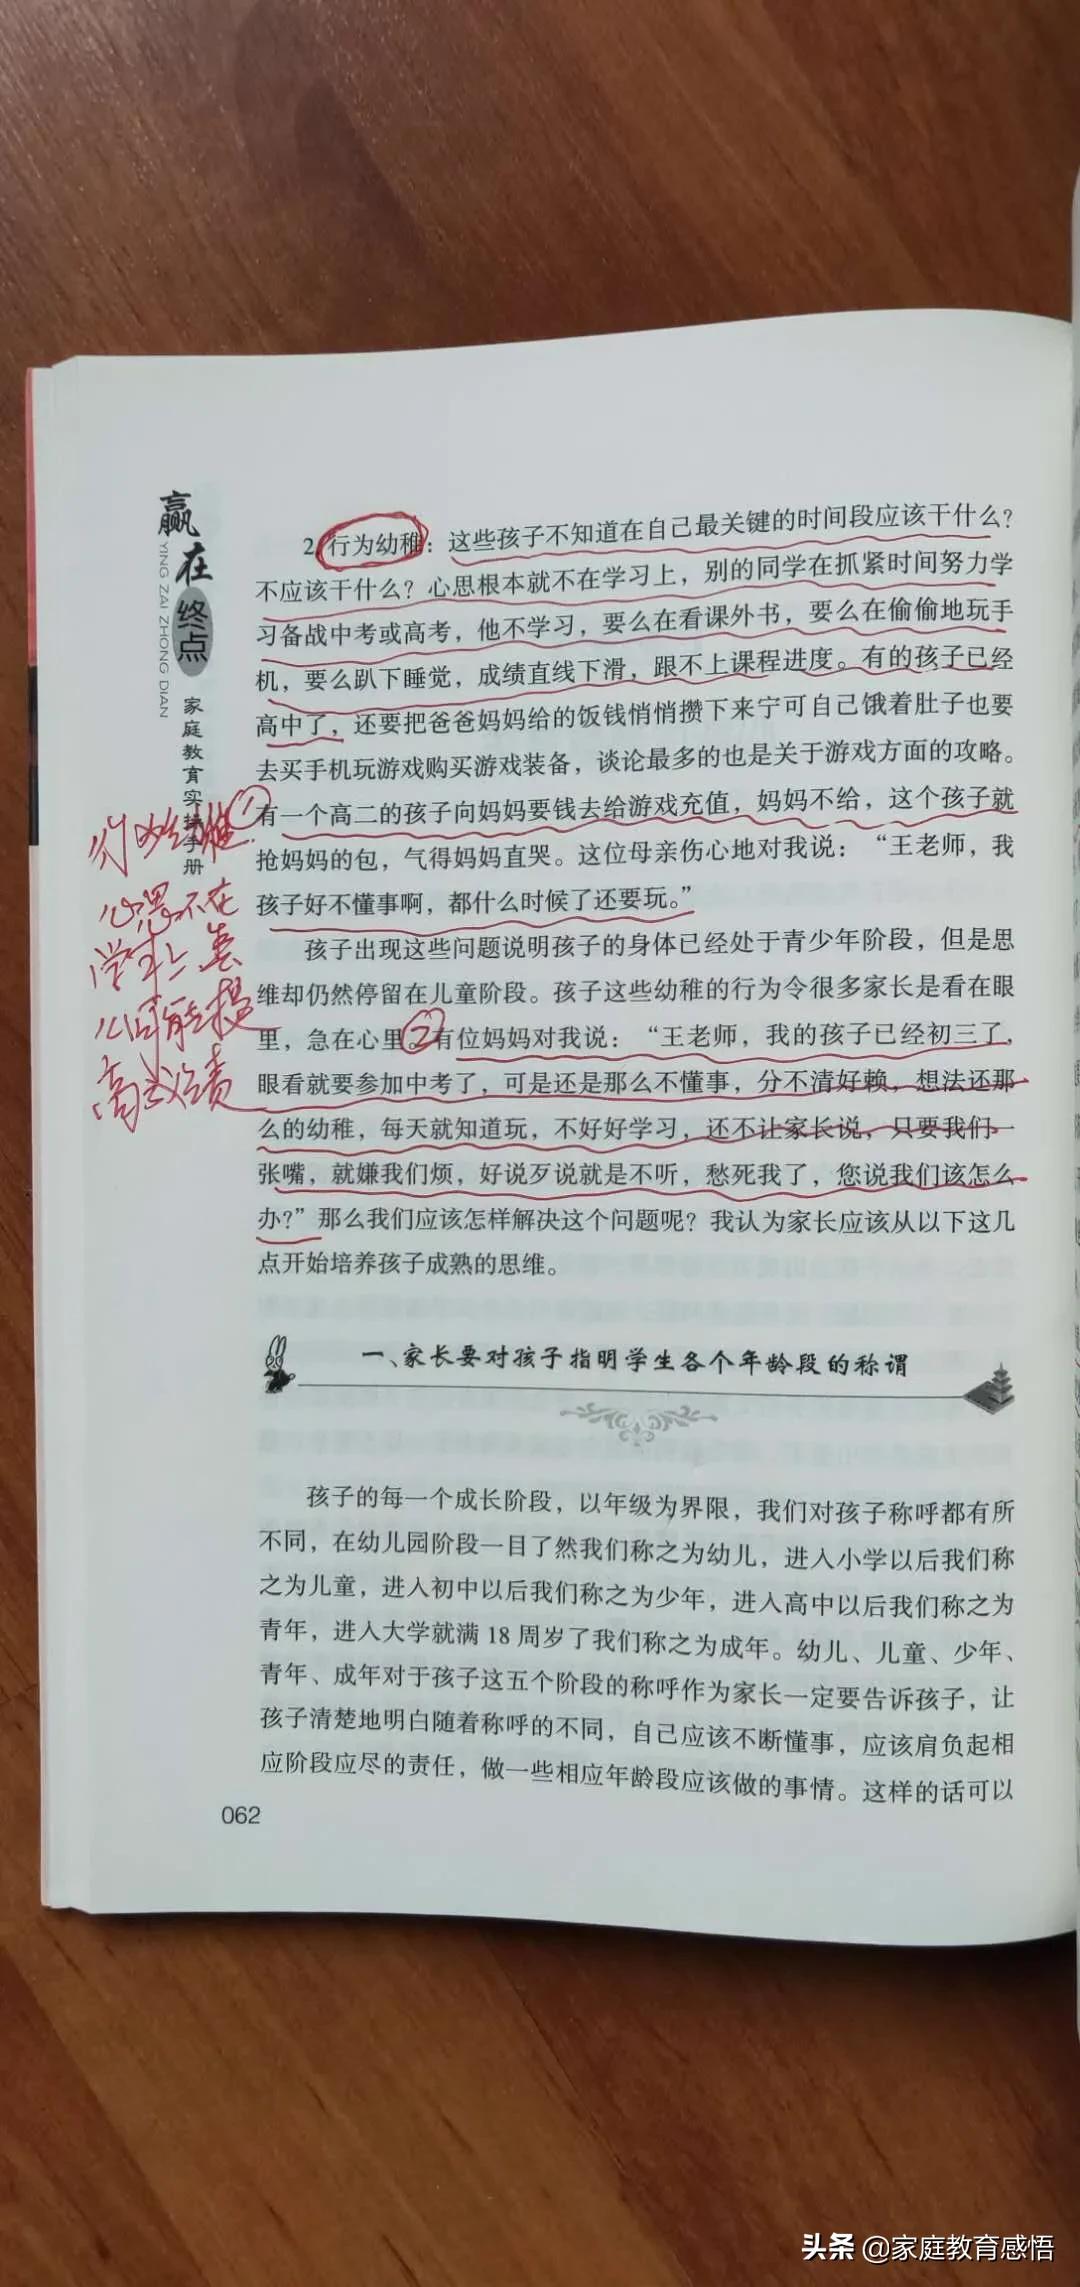 赢在终点
YING ZAI ZHONG DIAN
家庭教育实操手册
2.行为幼稚：这些孩子不知道在自己最关键的时间段应该干什么？
不应该干什么？心思根本就不在学习上，别的同学在抓紧时间努力学
习备战中考或高考，他不学习，要么在看课外书，要么在偷偷地玩手
机，要么趴下睡觉，成绩直线下滑，跟不上课程进度。有的孩子已经
高中了，还要把爸爸妈妈给的饭钱悄悄攒下来宁可自己饿着肚子也要
去买手机玩游戏购买游戏装备，谈论最多的也是关于游戏方面的攻略。
①
有一个高二的孩子向妈妈要钱去给游戏充值，妈妈不给，这个孩子就
抢妈妈的包，气得妈妈直哭。这位母亲伤心地对我说：“王老师，我
孩子好不懂事啊，都什么时候了还要玩。”
行为幼稚
心思不在
学习上怎
么可能提
高成绩
孩子出现这些问题说明孩子的身体已经处于青少年阶段，但是思
维却仍然停留在儿童阶段。孩子这些幼稚的行为令很多家长是看在眼
里，急在心里。②有位妈妈对我说：“王老师，我的孩子已经初三了，
眼看就要参加中考了，可是还是那么不懂事，分不清好赖，想法还那
么的幼稚，每天就知道玩，不好好学习，还不让家长说，只要我们一
张嘴，就嫌我们烦，好说歹说就是不听，愁死我了，您说我们该怎么
办？”那么我们应该怎样解决这个问题呢？我认为家长应该从以下这几
点开始培养孩子成熟的思维。
一、家长要对孩子指明学生各个年龄段的称谓
孩子的每一个成长阶段，以年级为界限，我们对孩子称呼都有所
不同，在幼儿园阶段一目了然我们称之为幼儿，进入小学以后我们称
之为儿童，进入初中以后我们称之为少年，进入高中以后我们称之为
青年，进入大学就满 18 周岁了我们称之为成年。幼儿、儿童、少年、
青年、成年对于孩子这五个阶段的称呼作为家长一定要告诉孩子，让
孩子清楚地明白随着称呼的不同，自己应该不断懂事，应该肩负起相
应阶段应尽的责任，做一些相应年龄段应该做的事情。这样的话可以
062
头条 @家庭教育感悟